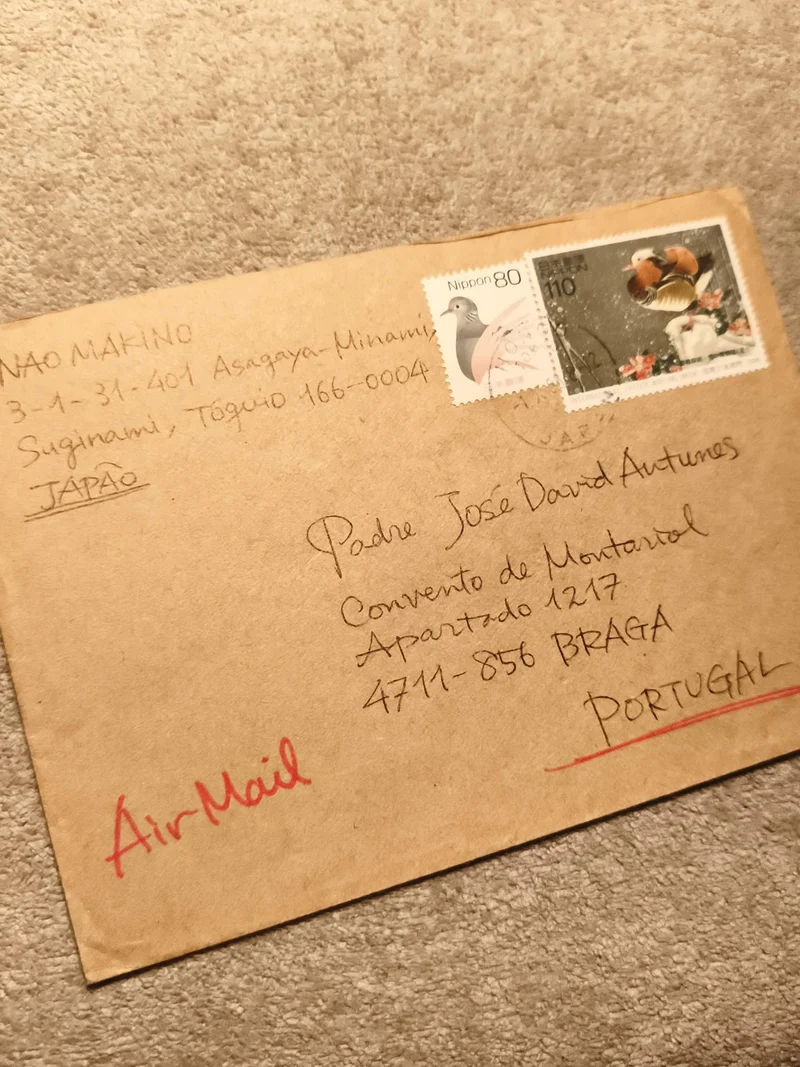 NAO MAKINO
3-1-31-401 Asagaya-Minami,
Suginami, Tóquio 166-0004
JAPÃO
Nippon 80
日本郵便
NIPPON
110
JAPAN
Padre José David Antunes
Convento de Montariol
Apartado 1217
4711-856 BRAGA
PORTUGAL
Air Mail